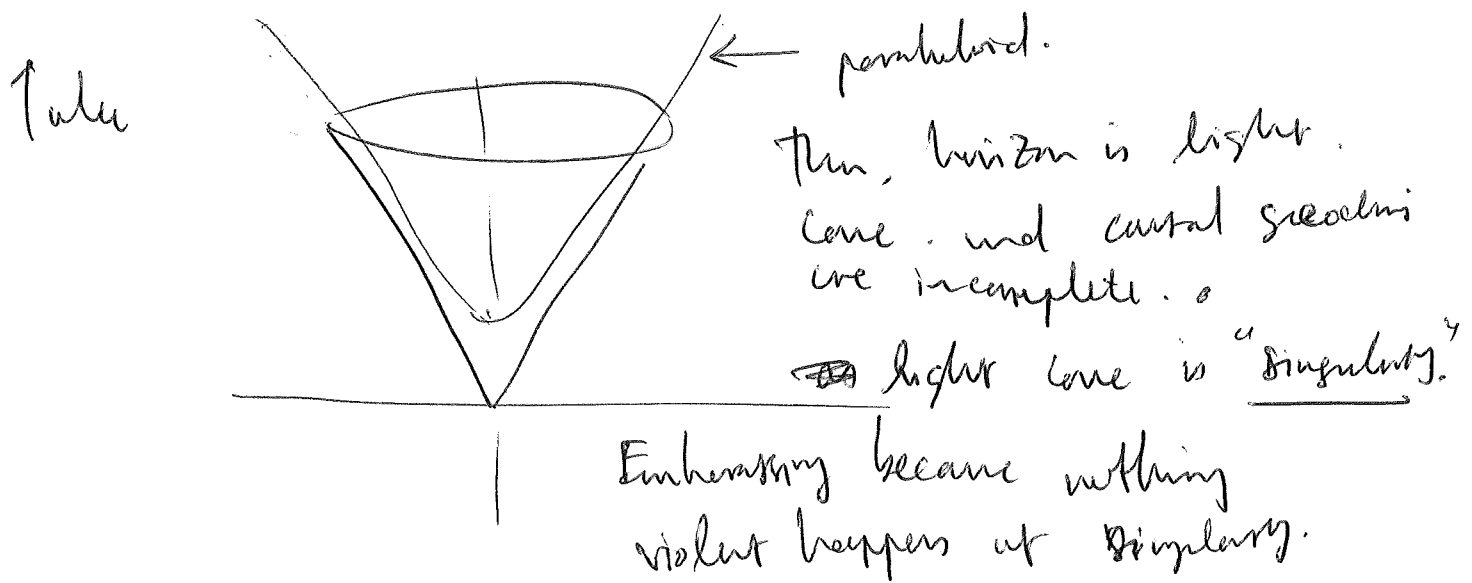 paraboloid.
Then, horizon is light
cone. and causal geodesics
are incomplete.
light cone is "Singularity."
Embarassing because nothing
violent happens at Singularity.